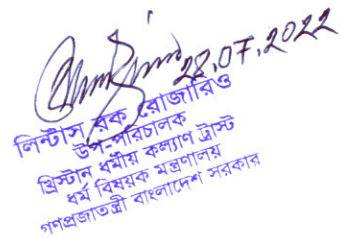 28.07.2022
লিন্টাস রক রোজারিও
উপ-পরিচালক
খ্রিস্টান ধর্মীয় কল্যাণ ট্রাস্ট
ধর্ম বিষয়ক মন্ত্রণালয়
গণপ্রজাতন্ত্রী বাংলাদেশ সরকার